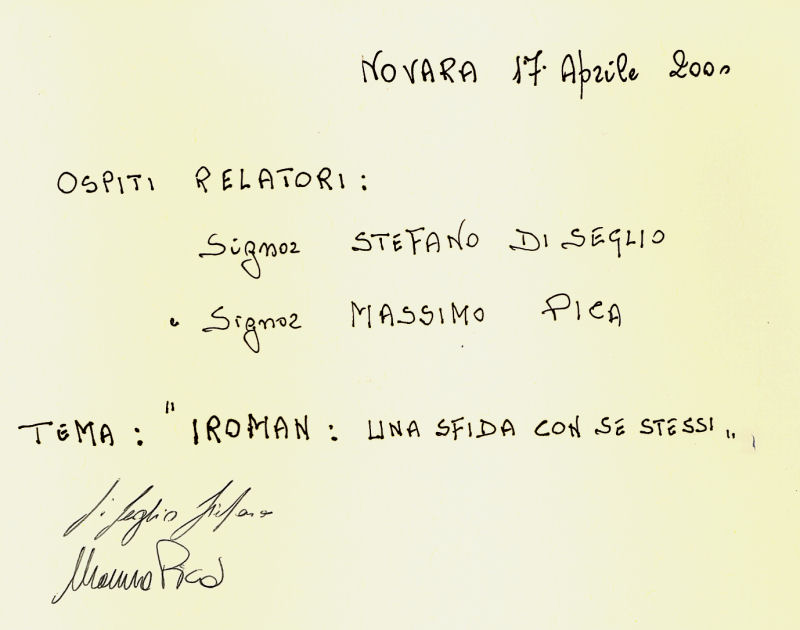 NOVARA 17 Aprile 2000
OSPITI RELATORI:
Signor STEFANO DI SEGLIO
e Signor MASSIMO PICA
TEMA: "IROMAN: UNA SFIDA CON SE STESSI"
Di Seglio Stefano
Massimo Pica